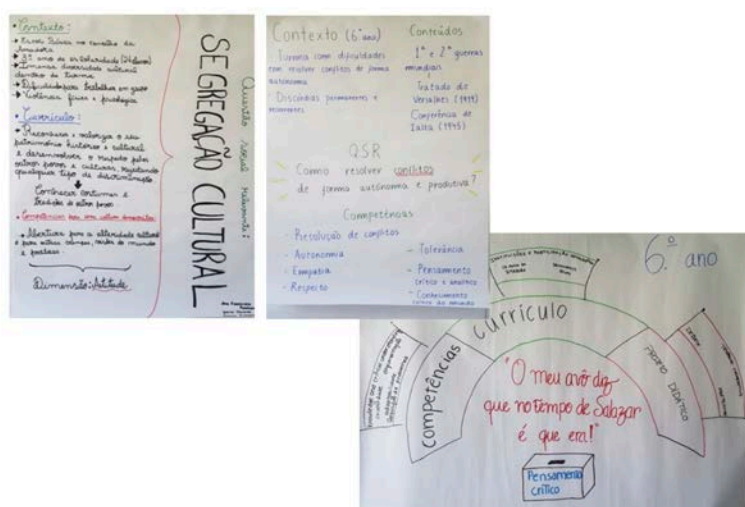 • Contexto:
no concelho da
Amadora
→ 3º ano de escolaridade
→ Imensa diversidade cultural
dentro da turma
→ Dificuldades para trabalhar em grupo
→ Violência física e psicológica
• Currículo:
→ Reconhecer e valorizar o seu
património histórico e cultural
e desenvolver o respeito pelos
outros povos e culturas, rejeitando
qualquer tipo de discriminação.
Conhecer costumes e
tradições de outros povos
• Competências para uma cultura democrática:
→ Abertura para a alteridade cultural
e para outras crenças, visões do mundo
e práticas.
Dimensão: Atitude
Questão social relevante:
SEGREGAÇÃO CULTURAL
Contexto (6º ano)
- Turma com dificuldades
em resolver conflitos de forma
autónoma
- Discórdias permanentes e
recorrentes
Conteúdos
1ª e 2ª guerras
mundiais
Tratado de
Versalhes (1919)
Conferência de
Ialta (1945)
QSR
Como resolver conflitos
de forma autónoma e produtiva?
Competências
- Resolução de conflitos
- Autonomia
- Empatia
- Respeito
- Tolerância
- Pensamento
crítico e analítico
- Conhecimento
crítico do mundo
6.º ano
Competências
Currículo
"O meu avô diz
que no tempo de Salazar
é que era!"
Pensamento
crítico